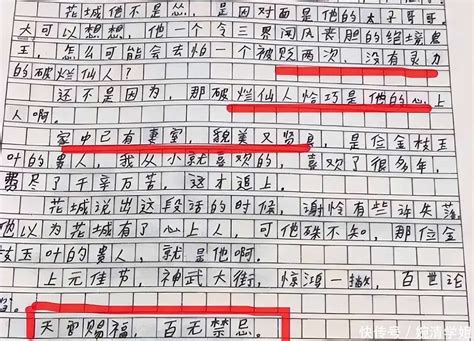 花城他不是怂，是因对面是他的太子哥哥。
大可以想想，他一个令三界闻风丧胆的绝境鬼
王，怎么可能会去怕一个被贬两次、没有灵力
的破烂仙人？
还不是因为，那破烂仙人恰巧是他的心上
人啊。
家中已有妻室，貌美又贤良，是位金枝玉
叶的贵人，我从小就喜欢的，喜欢了很多年，
费尽了千辛万苦，这才追上。
花城说出这段话的时候，谢怜有些许失落。
他以为花城有了心上人，可他殊不知，那位金
枝玉叶的贵人，就是他啊。
上元佳节，神武大街，惊鸿一瞥，百世沦
陷。
天官赐福，百无禁忌。
快传号／婉清学姐